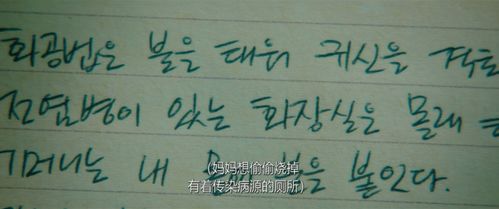 화공법은 불을 태워 귀신을
전염병이 있는 화장실은 몰래
머니는 내 불을 붙인다.
(妈妈想偷偷烧掉
有着传染病源的厕所)